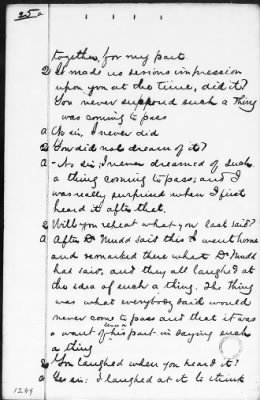 25 a
together, for my part
Q It made no serious impression
upon you at the time, did it?
You never supposed such a thing
was coming to pass
a No sir, I never did
Q You did not dream of it?
a - No sir; I never dreamed of such
a thing coming to pass; and I
was really surprised when I first
heard it after that.
Q Will you repeat what you last said?
a After Dr Mudd said this I went home
and remarked there what Dr Mudd
had said, and they all laughed at
the idea of such a thing. The thing
was what everybody said would
never come to pass and that it was
a want of his part in saying such
a thing
Q You laughed when you heard it?
a Yes sir; I laughed at it to think
1299